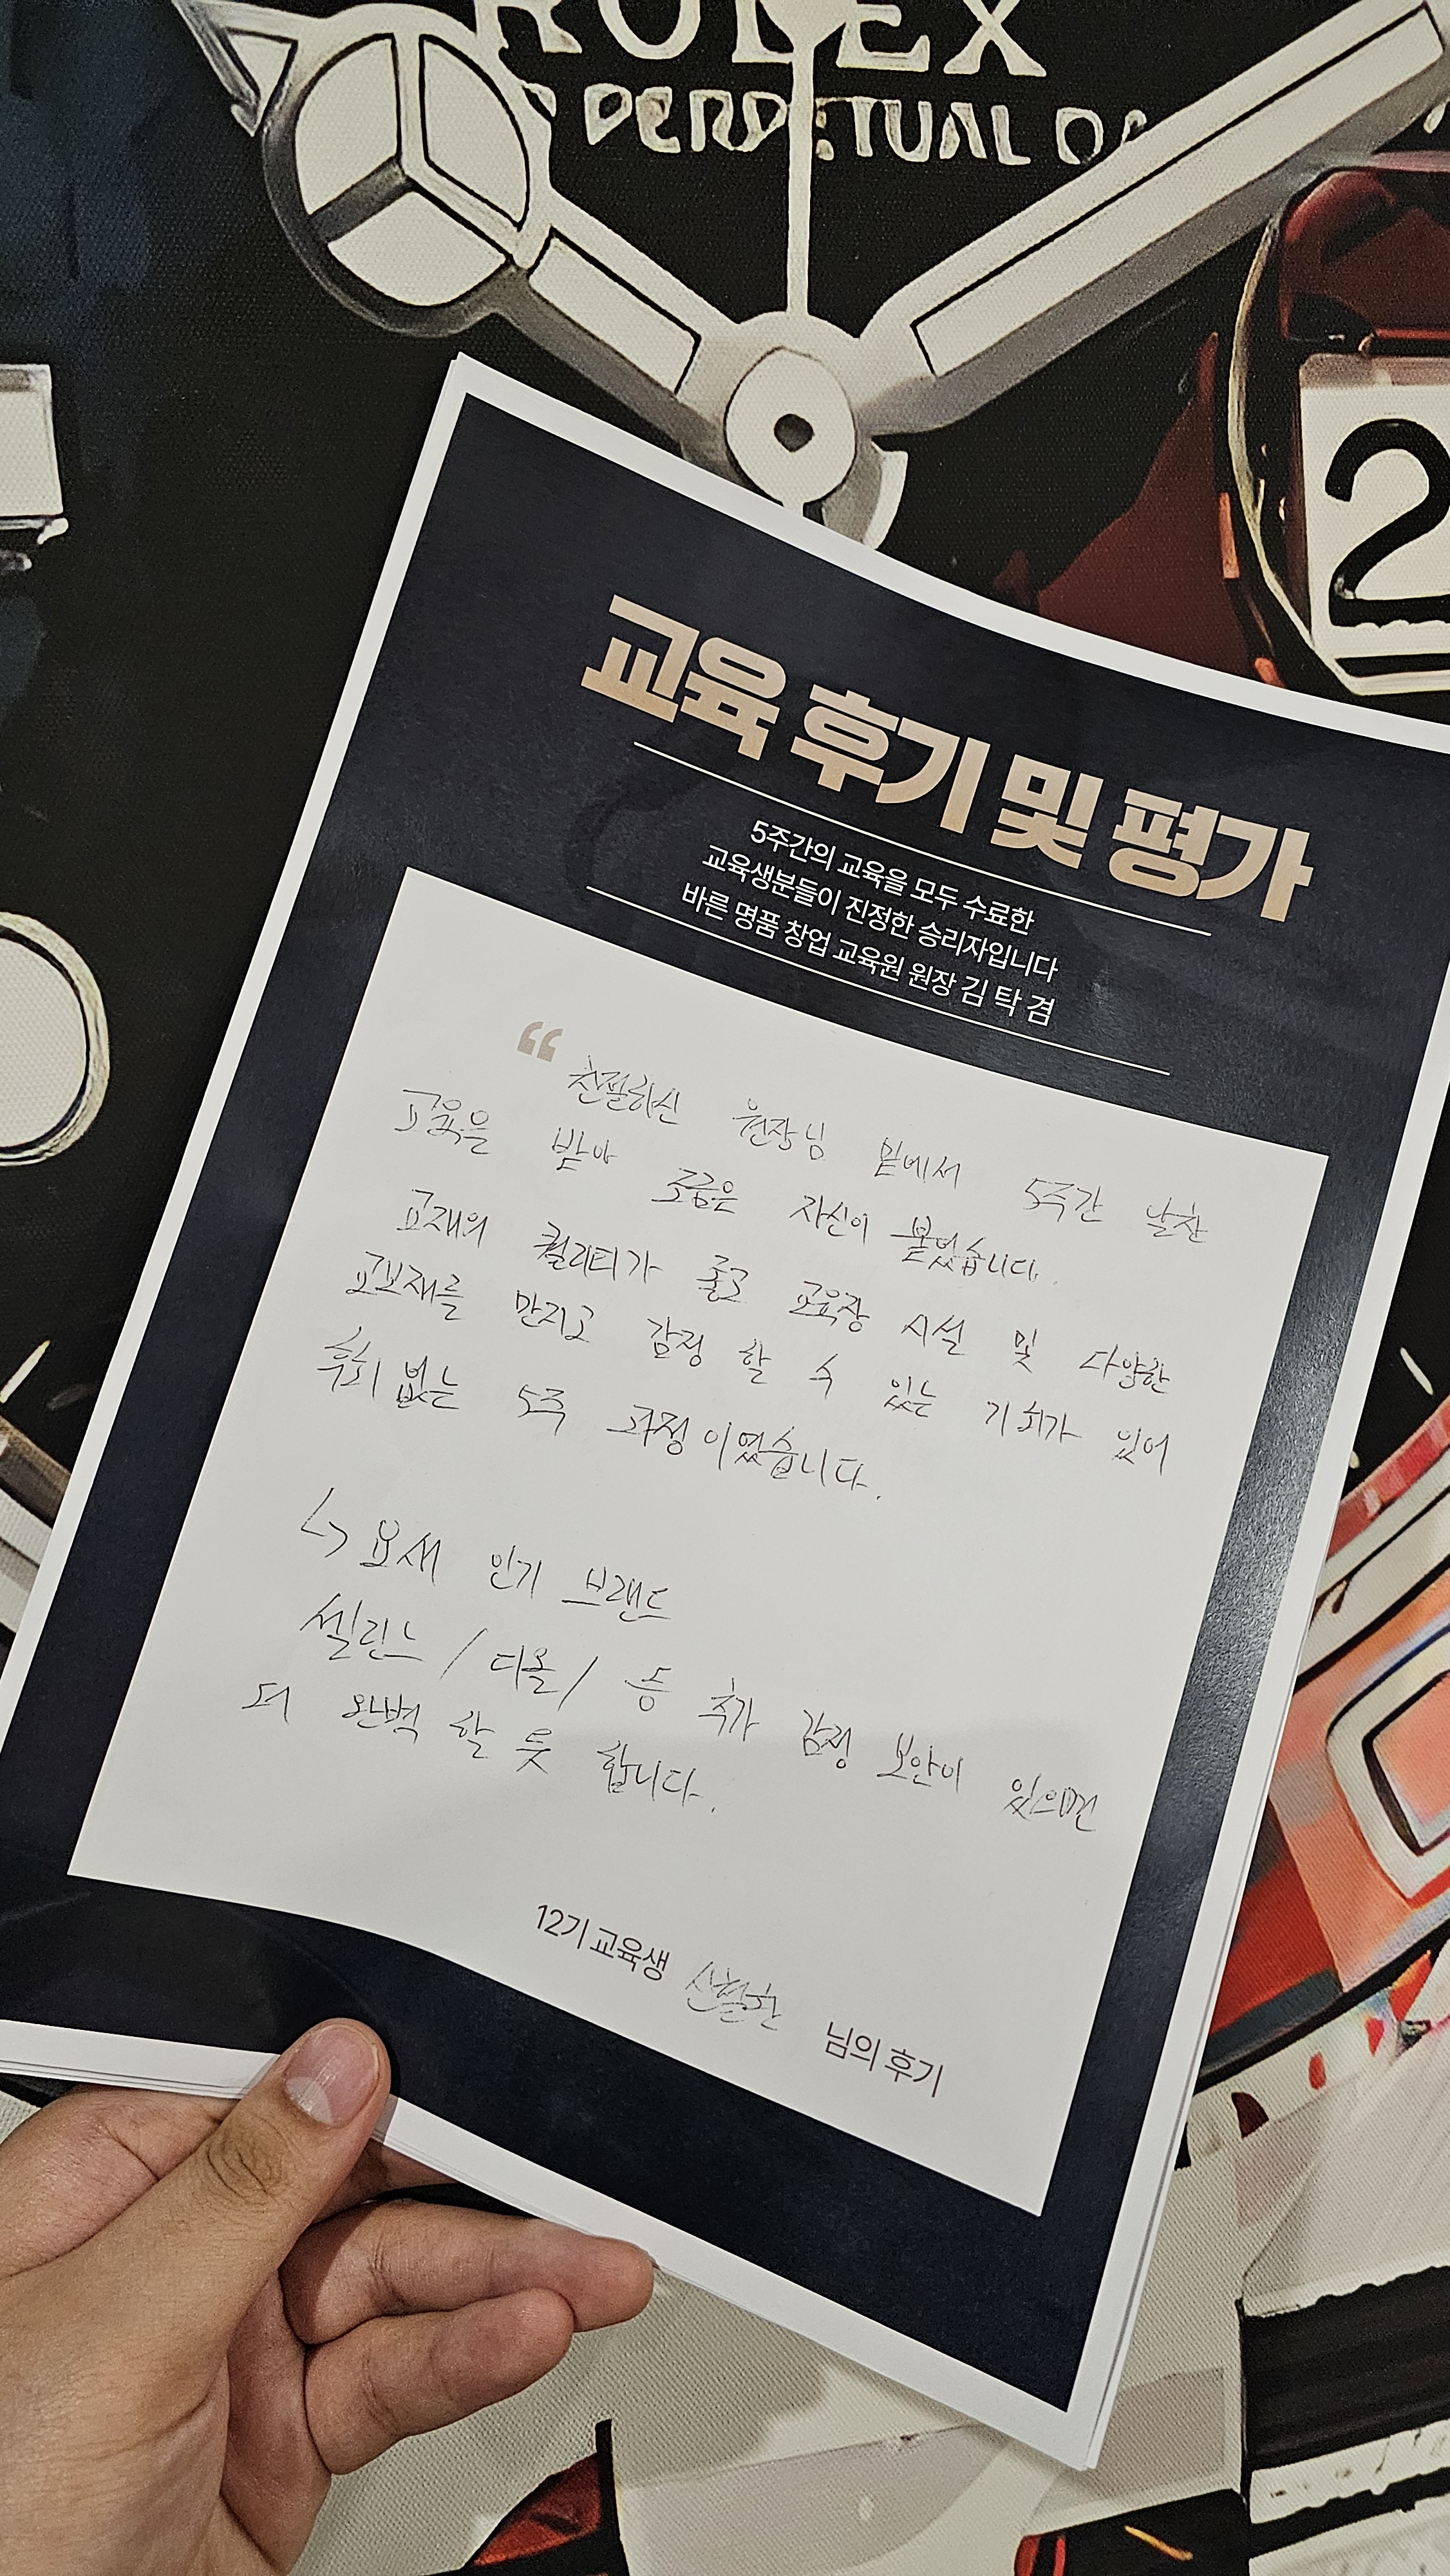 ROLEX
PERPETUAL DA
2
교육 후기 및 평가
5주간의 교육을 모두 수료한
교육생분들이 진정한 승리자입니다
바른 명품 창업 교육원 원장 김 탁 겸
“ 친절하신 원장님 밑에서 5주간 알찬
교육을 받아 조금은 자신이 붙었습니다.
교재의 퀄리티가 좋고 교육장 시설 및 다양한
교보재를 만지고 감정 할 수 있는 기회가 있어
후회 없는 5주 과정 이였습니다.
↳ 요새 인기 브랜드
셀린느 / 디올 / 등 추가 감정 보안이 있으면
더 완벽 할 듯 합니다.
12기 교육생 님의 후기